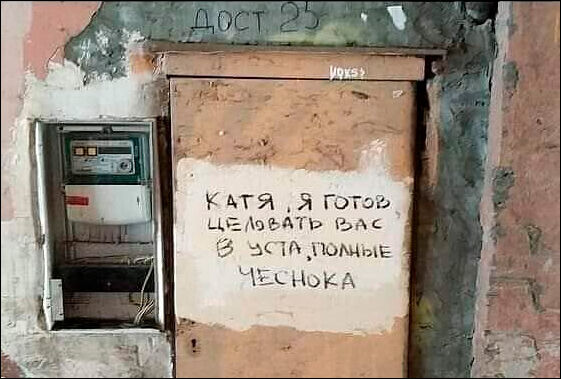 ДОСТ 25
КАТЯ, Я ГОТОВ
ЦЕЛОВАТЬ ВАС
В УСТА, ПОЛНЫЕ
ЧЕСНОКА